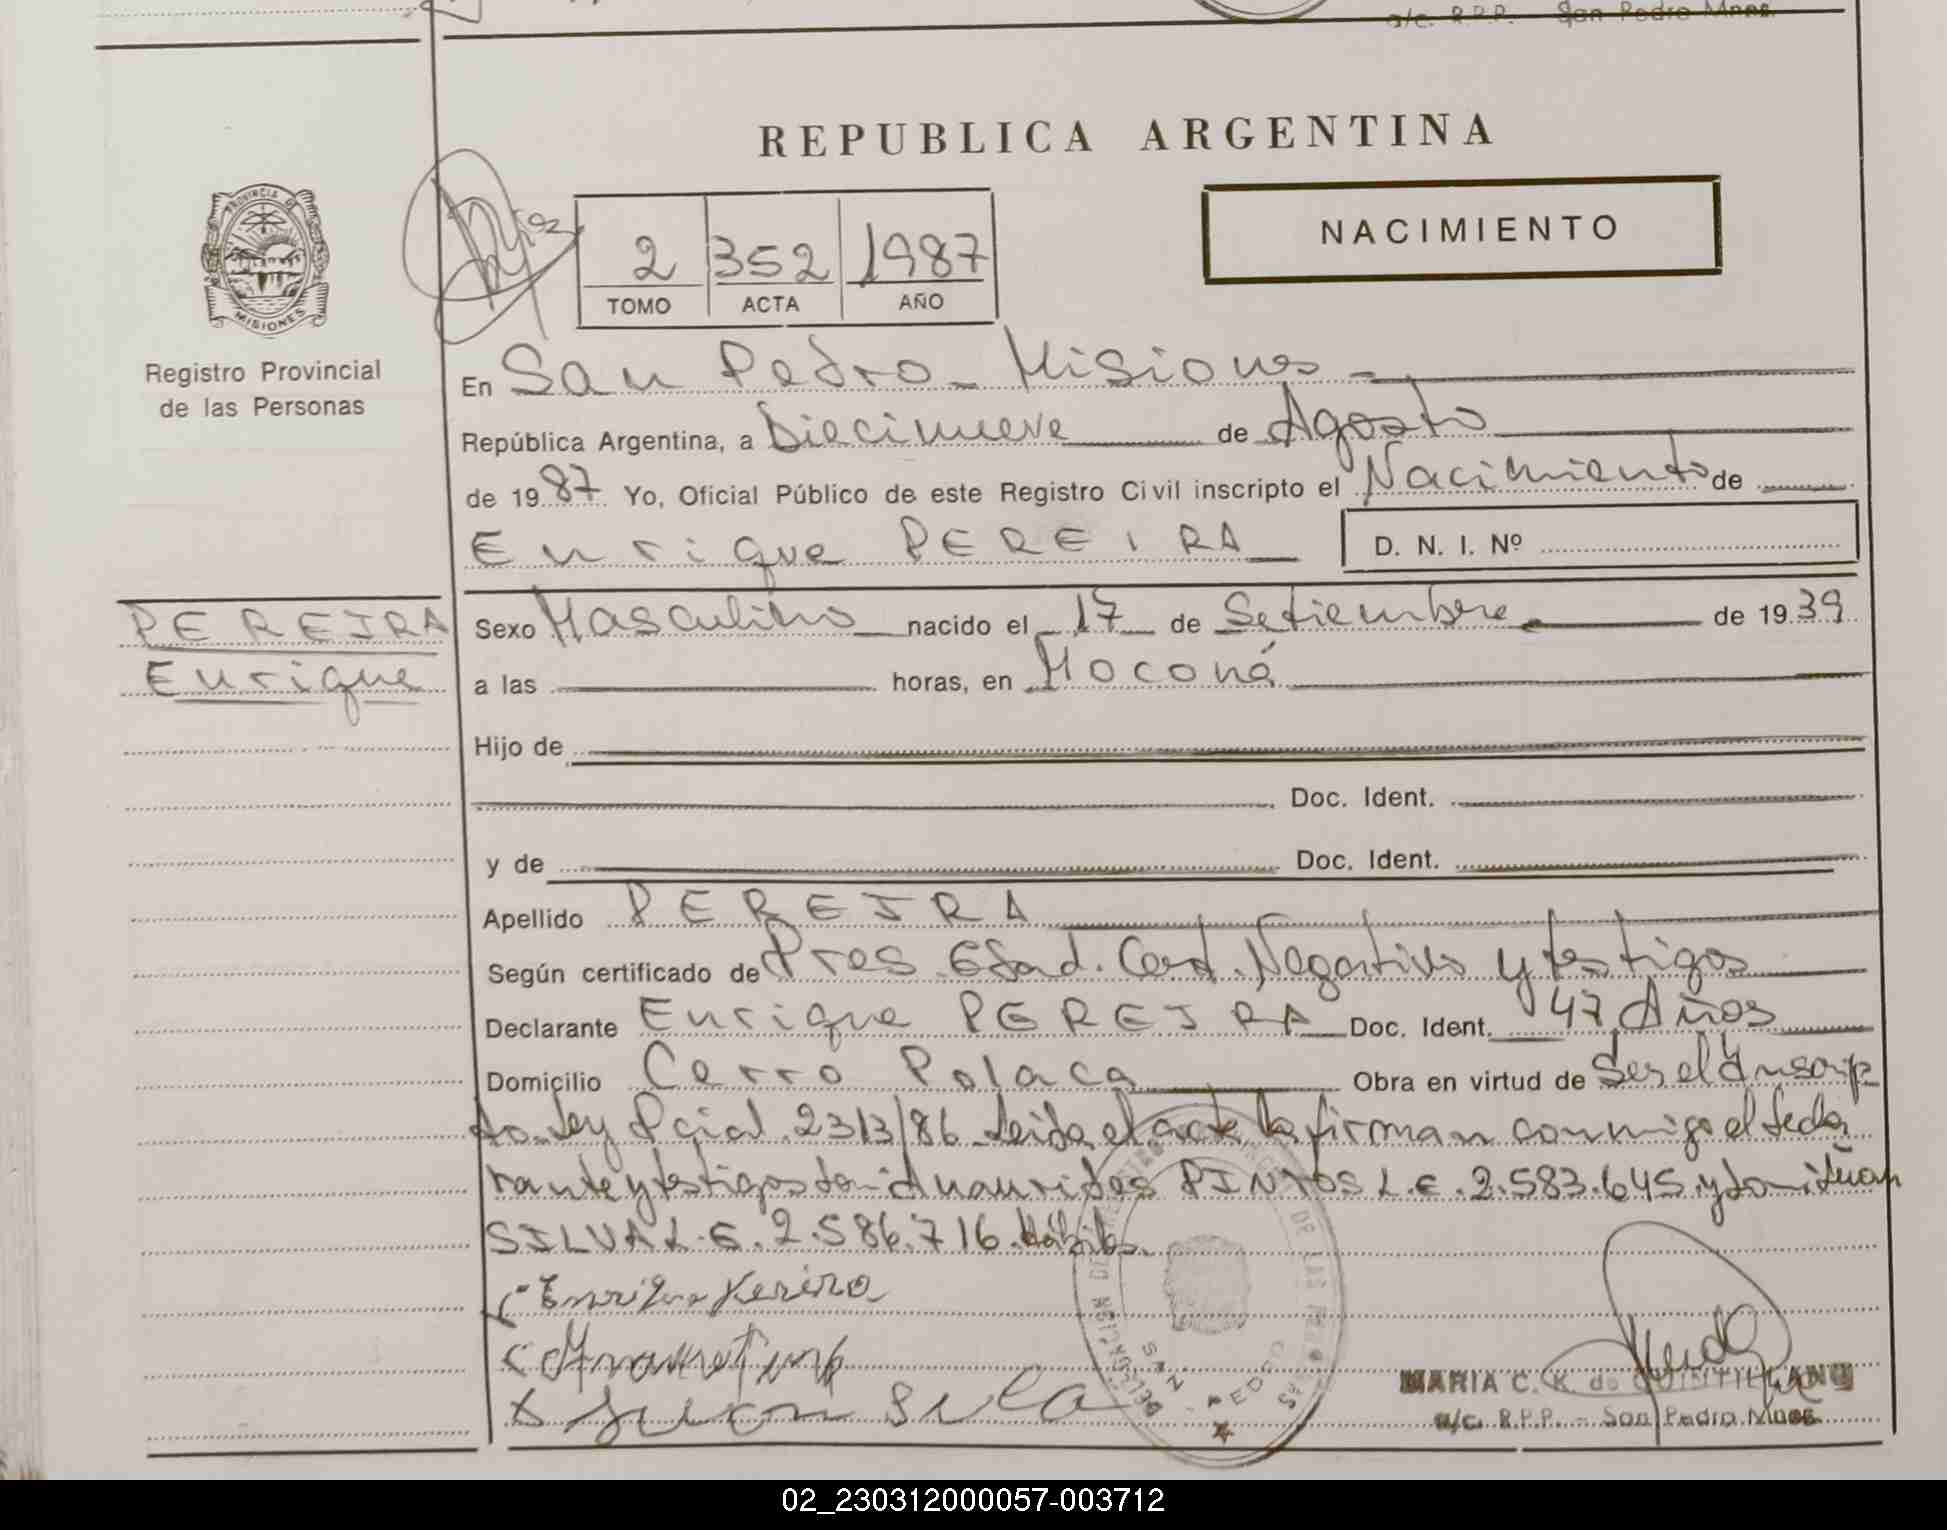 a/c. R.P.P. San Pedro Mnes.
REPUBLICA ARGENTINA
PROVINCIA DE
MISIONES
NACIMIENTO
2 352 1987
TOMO ACTA AÑO
Registro Provincial
de las Personas
En San Pedro - Misiones -
República Argentina, a Diecinueve de Agosto
de 19 87 Yo, Oficial Público de este Registro Civil inscripto el Nacimiento de
Enrique PEREIRA D. N. I. Nº
PEREIRA
Enrique
Sexo Masculino nacido el 17 de Setiembre de 19 39
a las horas, en Moconá
Hijo de
Doc. Ident.
y de Doc. Ident.
Apellido PEREIRA
Según certificado de Pres. Edad. Cert. Negativo y testigos
Declarante Enrique PEREIRA Doc. Ident. 47 Años
Domicilio Cerro Polaca Obra en virtud de Ser el Inscrip
to. Ley Pcial. 2313/86. Leida el acta la firman conmigo el decla
rante y testigos don PINTOS L.E. 2.583.645. y don Juan
SILVA L.E. 2.586.716. Hábiles.
Enrique Pereira
Juan Silva
SAN PEDRO
MARIA C. K. de QUINTILLANO
a/c. R.P.P. - San Pedro Mnes.
02_230312000057-003712